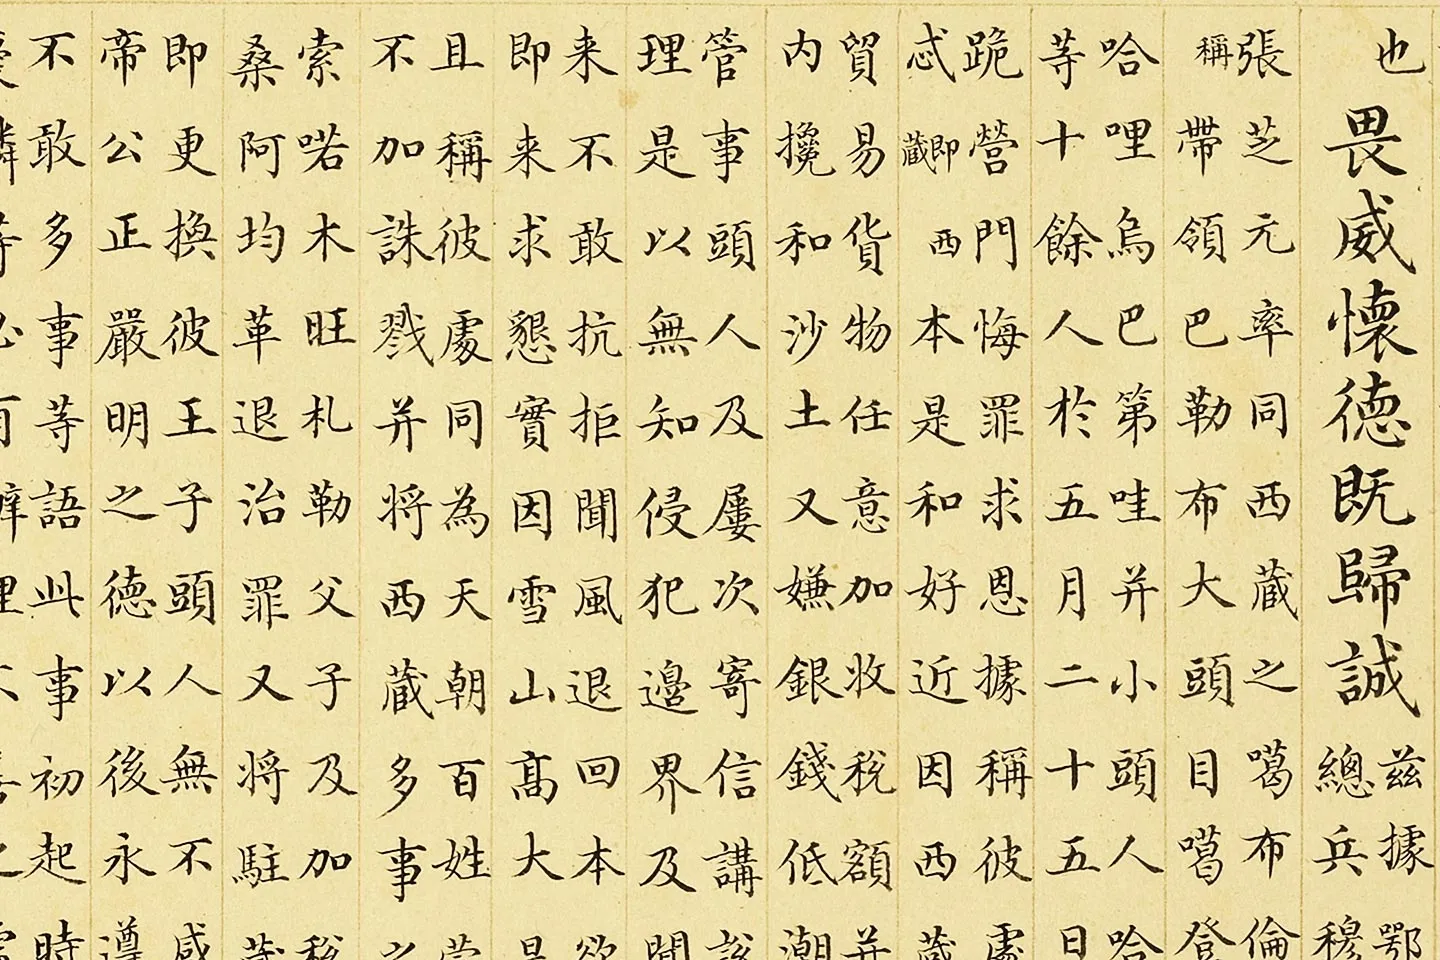 也
畏威懷德既歸誠
兹據鄂
總兵穆
張芝元率同西藏之噶布倫
稱帶領巴勒布大頭目噶登
哈哩烏巴第哇并小頭人哈
等十餘人於五月二十五日
跪營門悔罪求恩據稱彼處
忒即藏西本是和好近因西藏
貿易貨物任意加收稅額并
内攙和沙土又嫌銀錢低潮
管事頭人及屢次寄信講說
理是以無知侵犯邊界及聞
来不敢抗拒聞風退回本欲
即来求懇實因雪山高大是
且稱彼處同為天朝百姓當
不加誅戮并将西藏多事之
索喏木旺札勒父子及加稅
桑阿均革退治罪又将駐藏
即更換彼王子頭人無不感
帝公正嚴明之德以後永遵
不敢多事等語此事初起時